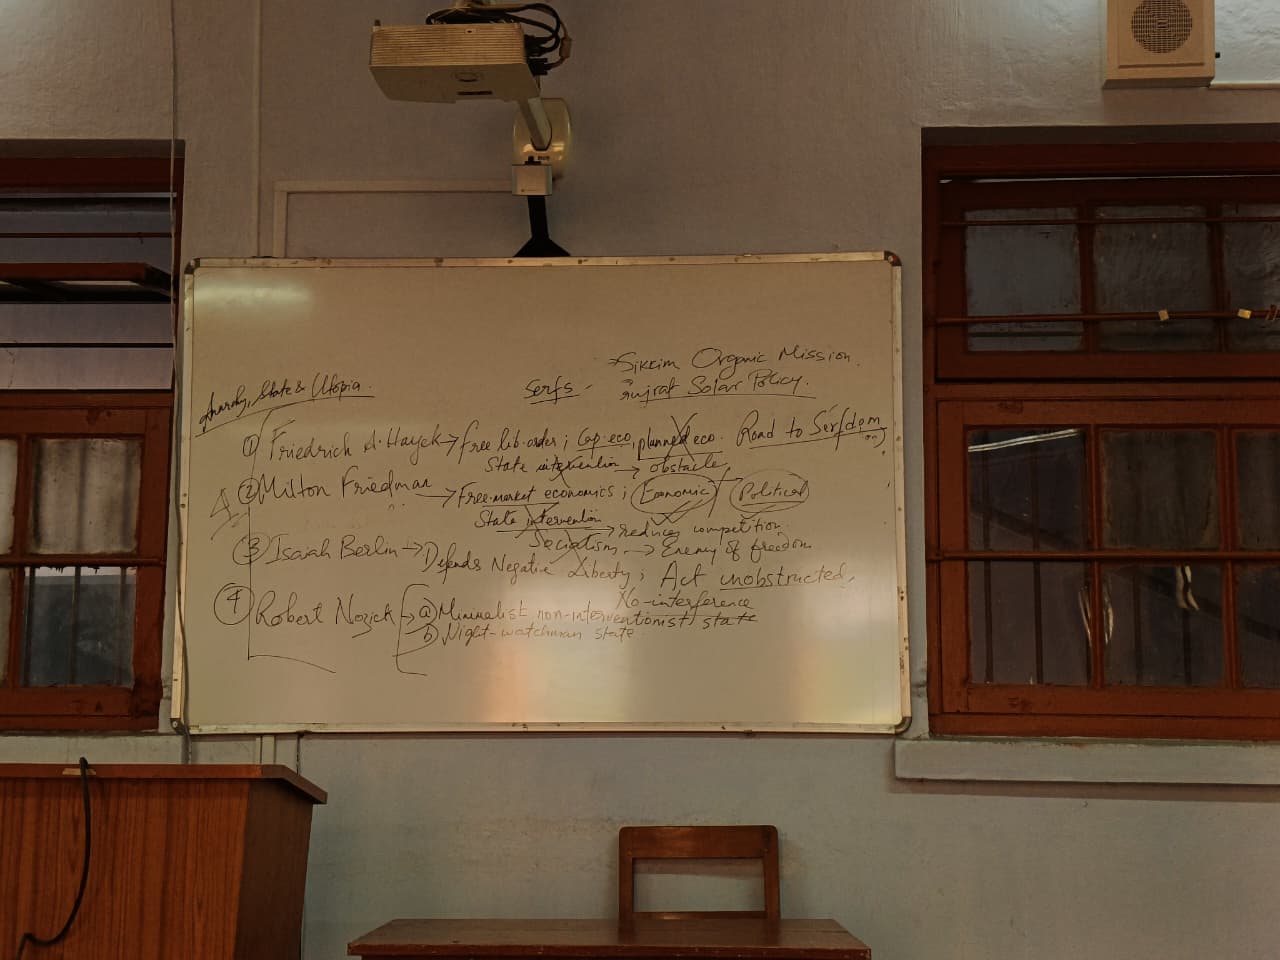 Sikkim Organic Mission.
Anarchy, State & Utopia.
Serfs - Gujrat Solar Policy.
① Friedrich A. Hayek → free lib. order ; Cap. eco, planned eco. Road to Serfdom
State intervention → obstacle
② Milton Friedman → Free-market economics ; Economic Political
State intervention → reduces competition
Socialism → Enemy of freedom
③ Isaiah Berlin → Defends Negative Liberty ; Act unobstructed.
No-interference
④ Robert Nozick → a) Minimalist non-interventionist state
b) Night-watchman state